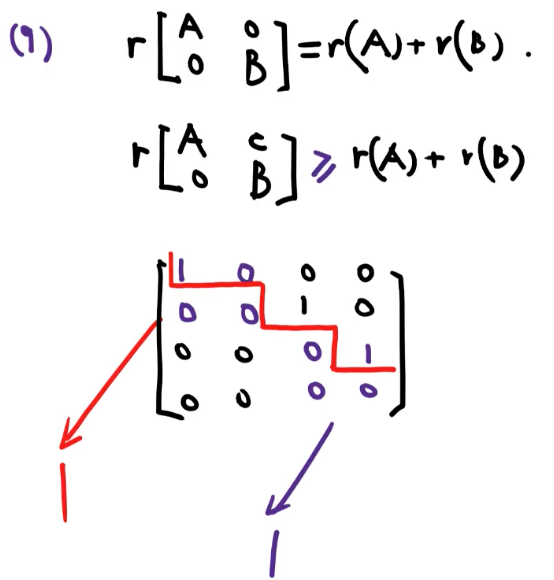 (9) r[A 0
0 B] = r(A) + r(B).
r[A c
0 B] ⩾ r(A) + r(B)
[1 0 0 0
0 0 1 0
0 0 0 1
0 0 0 0]
1
1